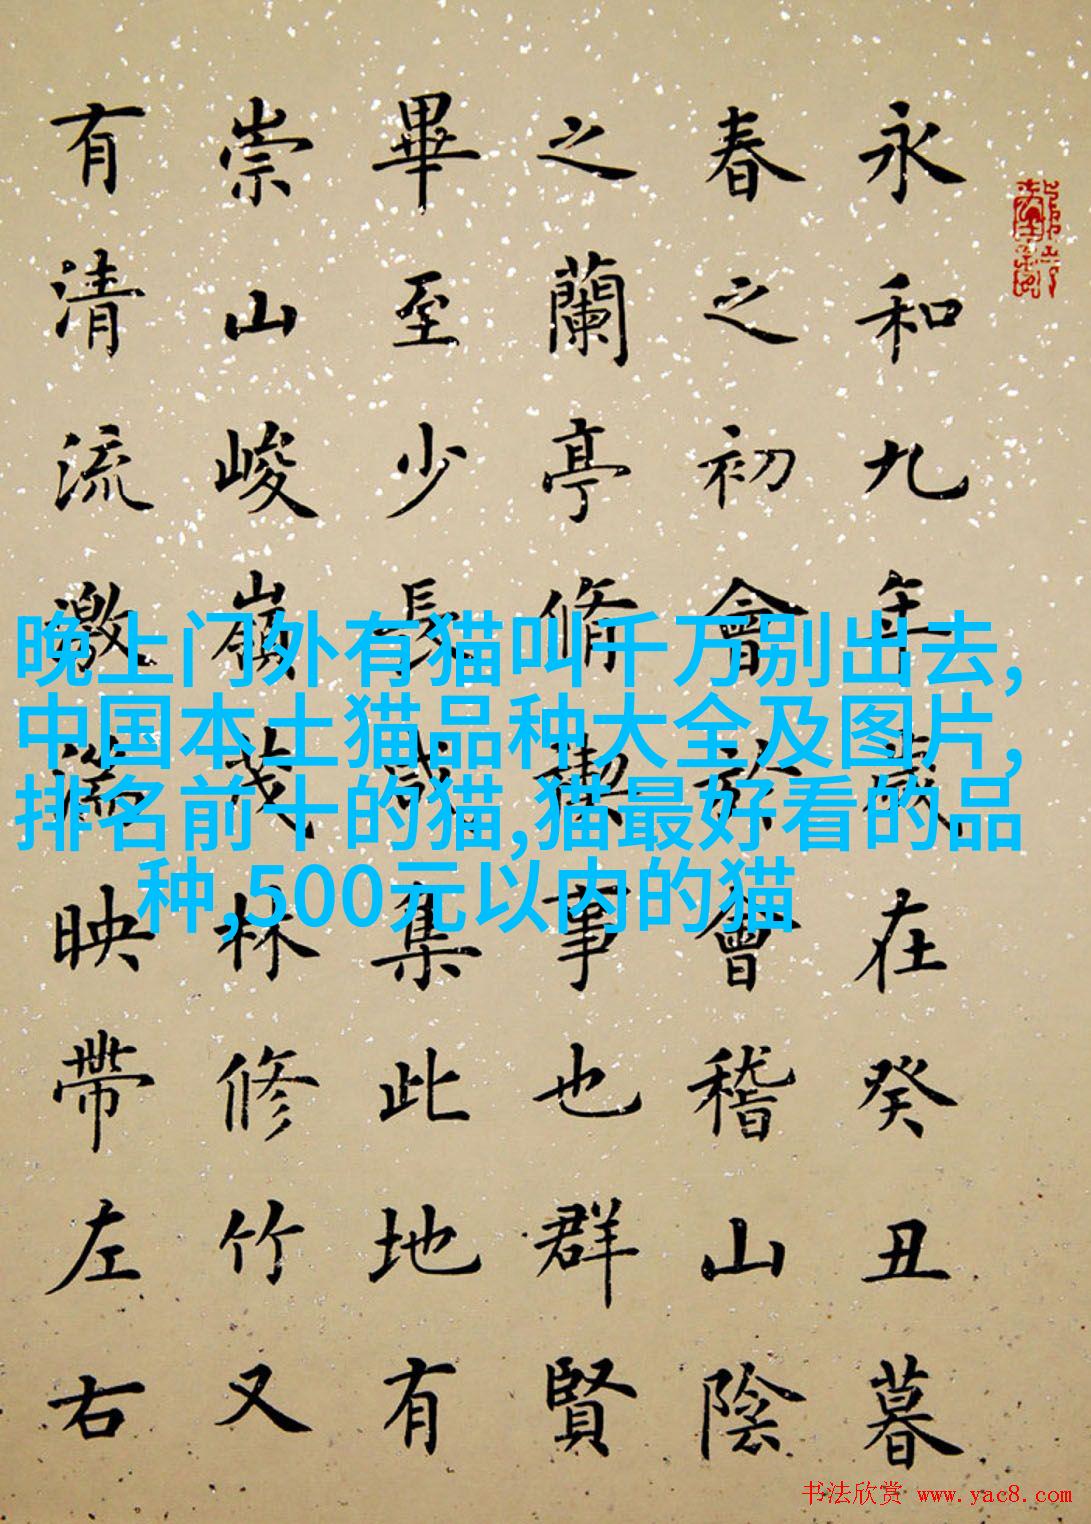 永和九年歲在癸丑暮
春之初會於會稽山陰
之蘭亭脩禊事也群賢
畢至少長咸集此地有
崇山峻嶺茂林修竹又
有清流激湍映帶左右
晚上门外有猫叫千万别出去,
中国本土猫品种大全及图片,
排名前十的猫,猫最好看的品
种,500元以内的猫
书法欣赏 www.yac8.com